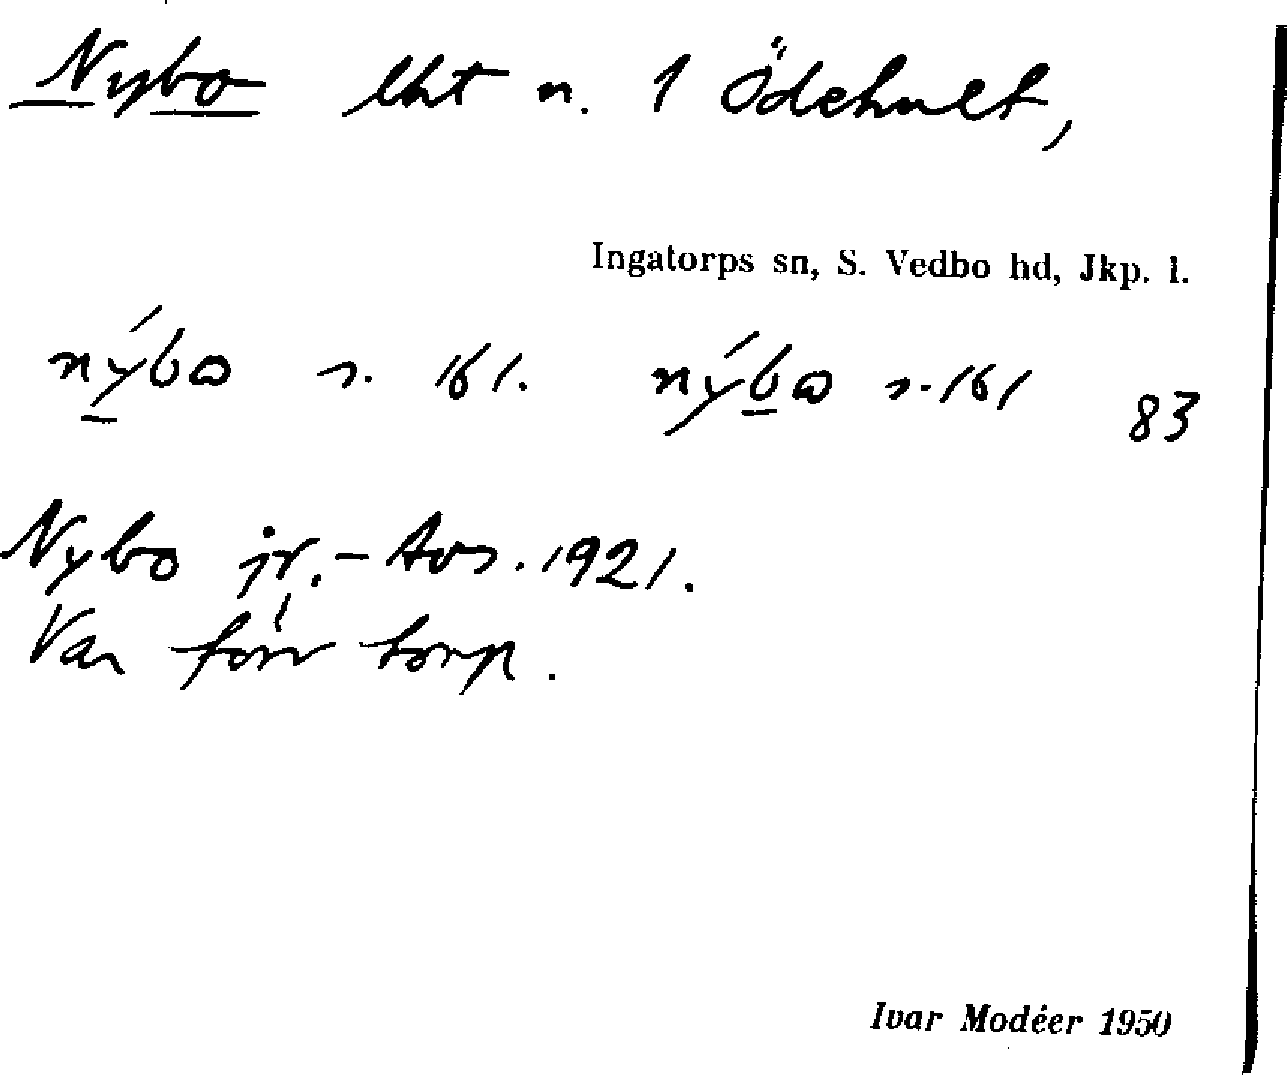 Nybo lht n. 1 Ödehult,
Ingatorps sn, S. Vedbo hd, Jkp. l.
nýbo s. 161. nýbo s. 161 83
Nybo jr. - Avs. 1921.
Var förr torp.
Ivar Modéer 1950